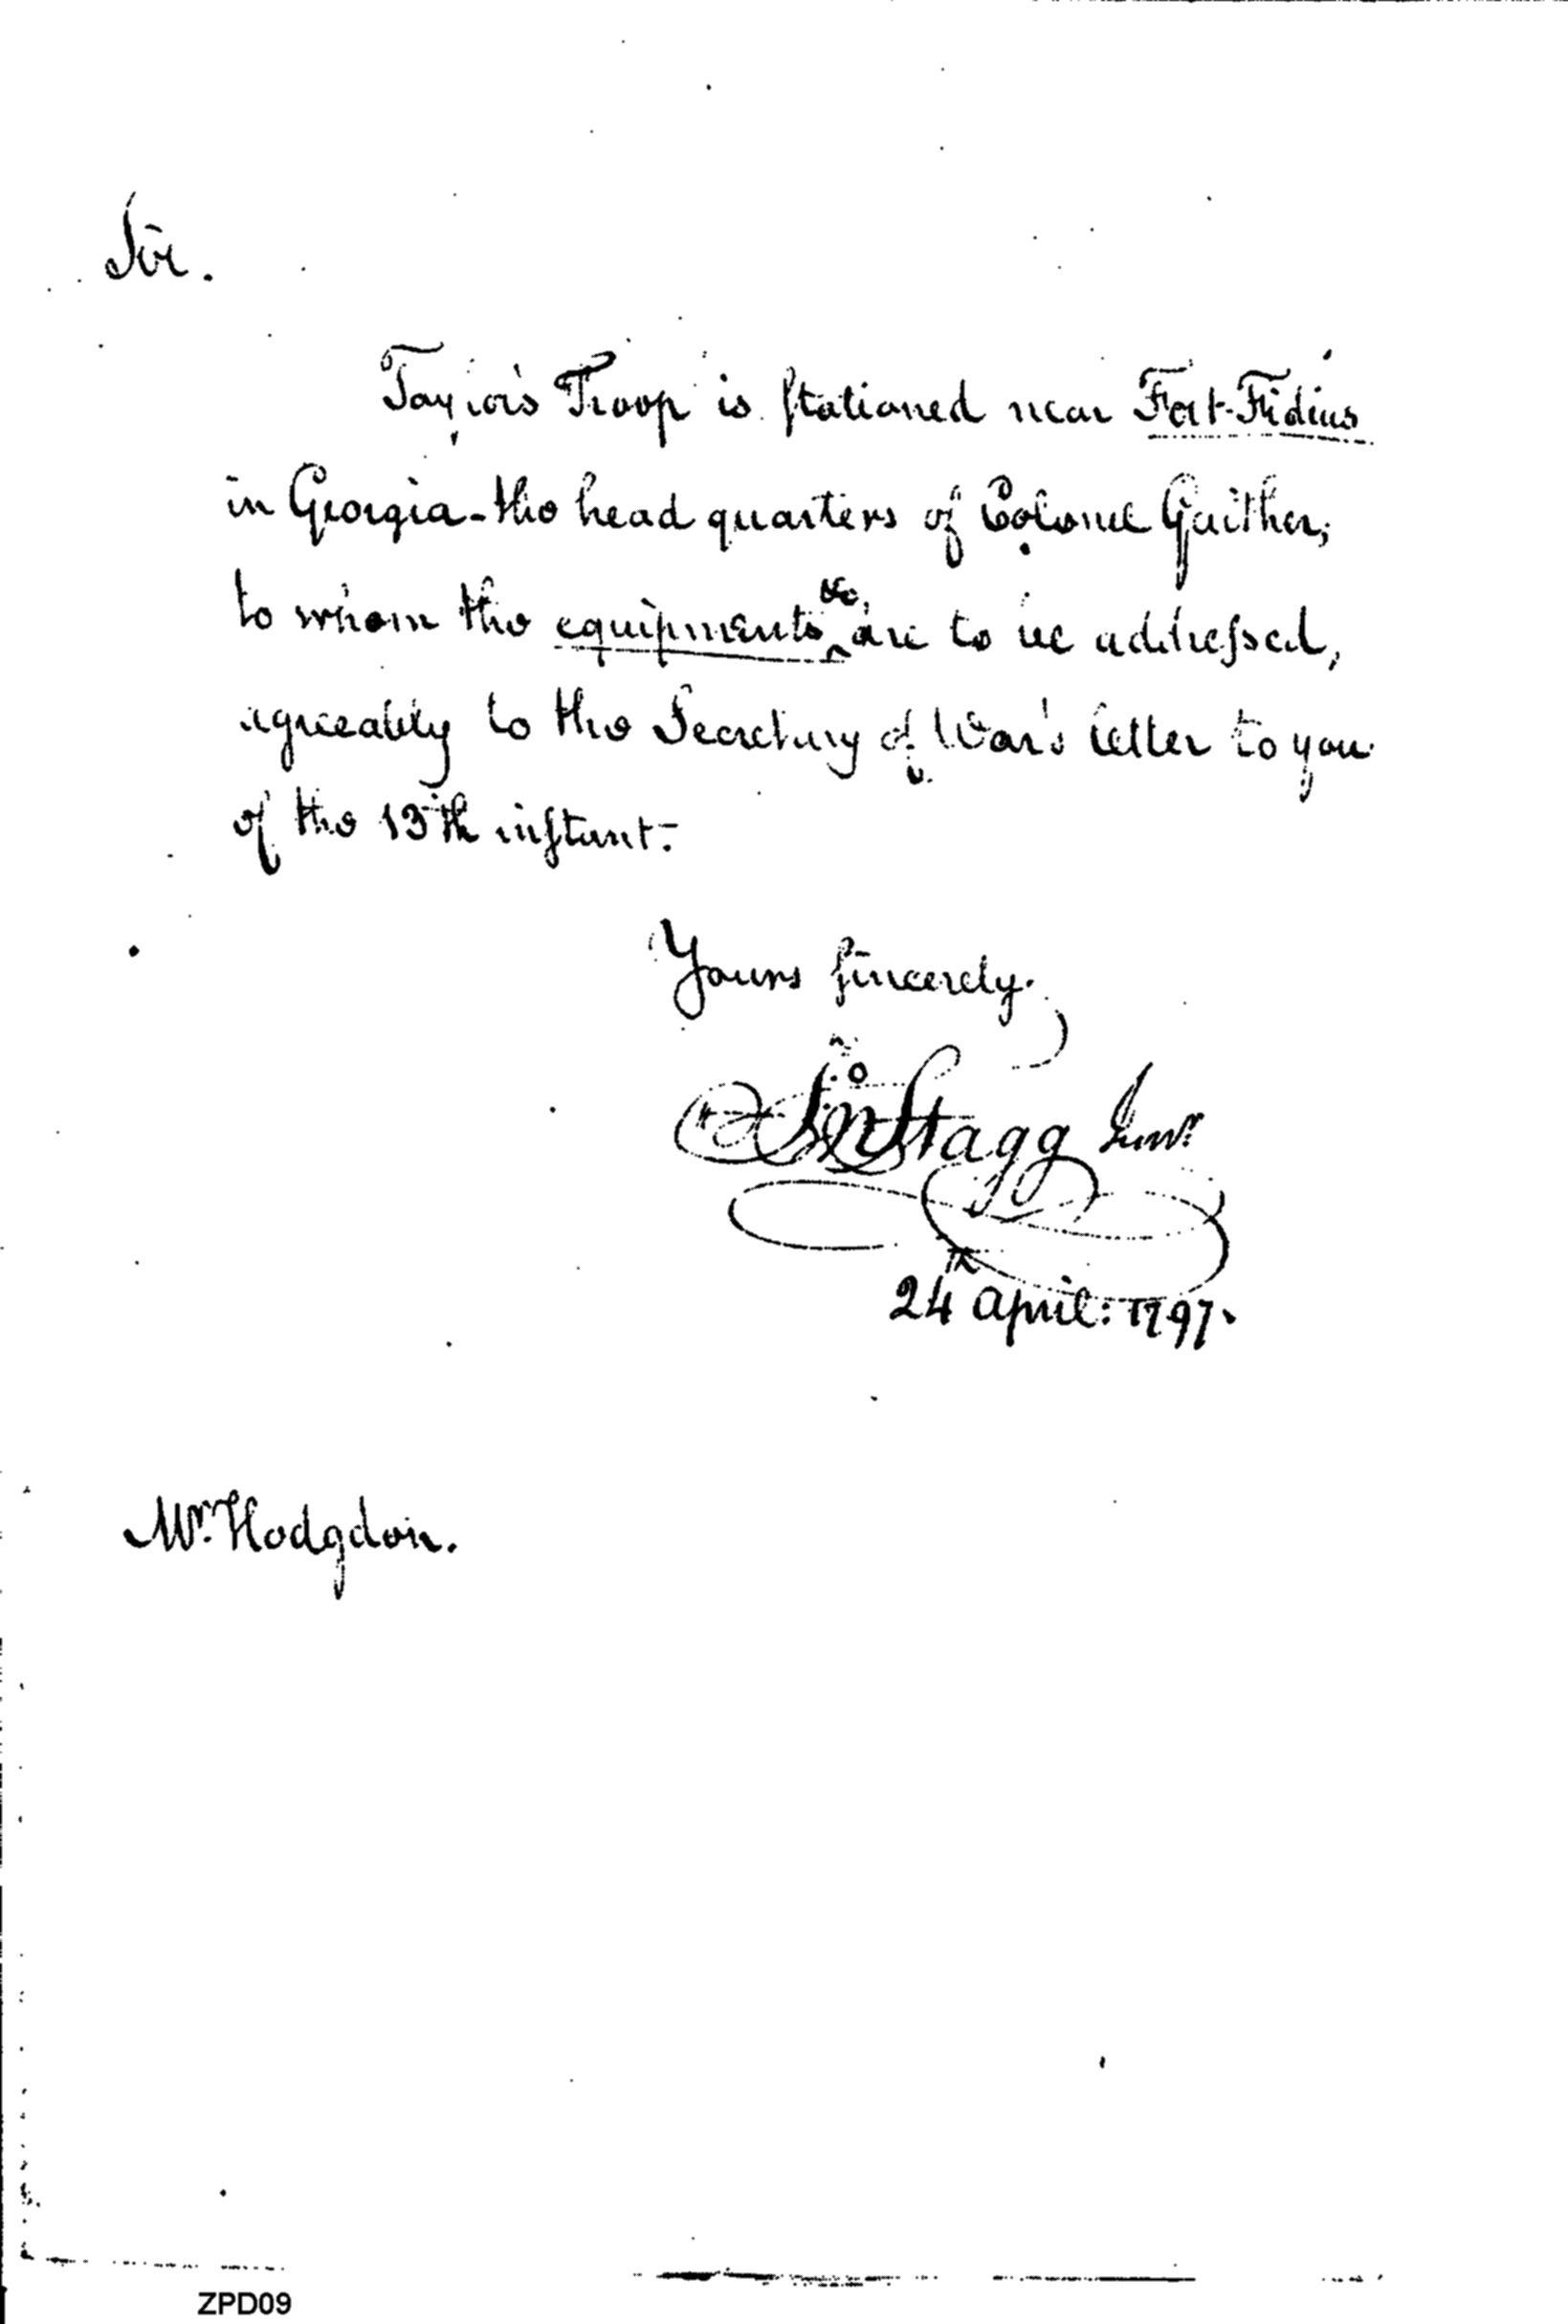 Sir.
Taylor's Troop is stationed near Fort-Fidius
in Georgia-the head quarters of Colonel Gaither;
to whom the equipments &c, are to be addressed,
agreeably to the Secretary of War's letter to you
of the 13th instant.
Yours sincerely.
Jno Stagg Junr
24th April: 1797.
Mr. Hodgdon.
ZPD09